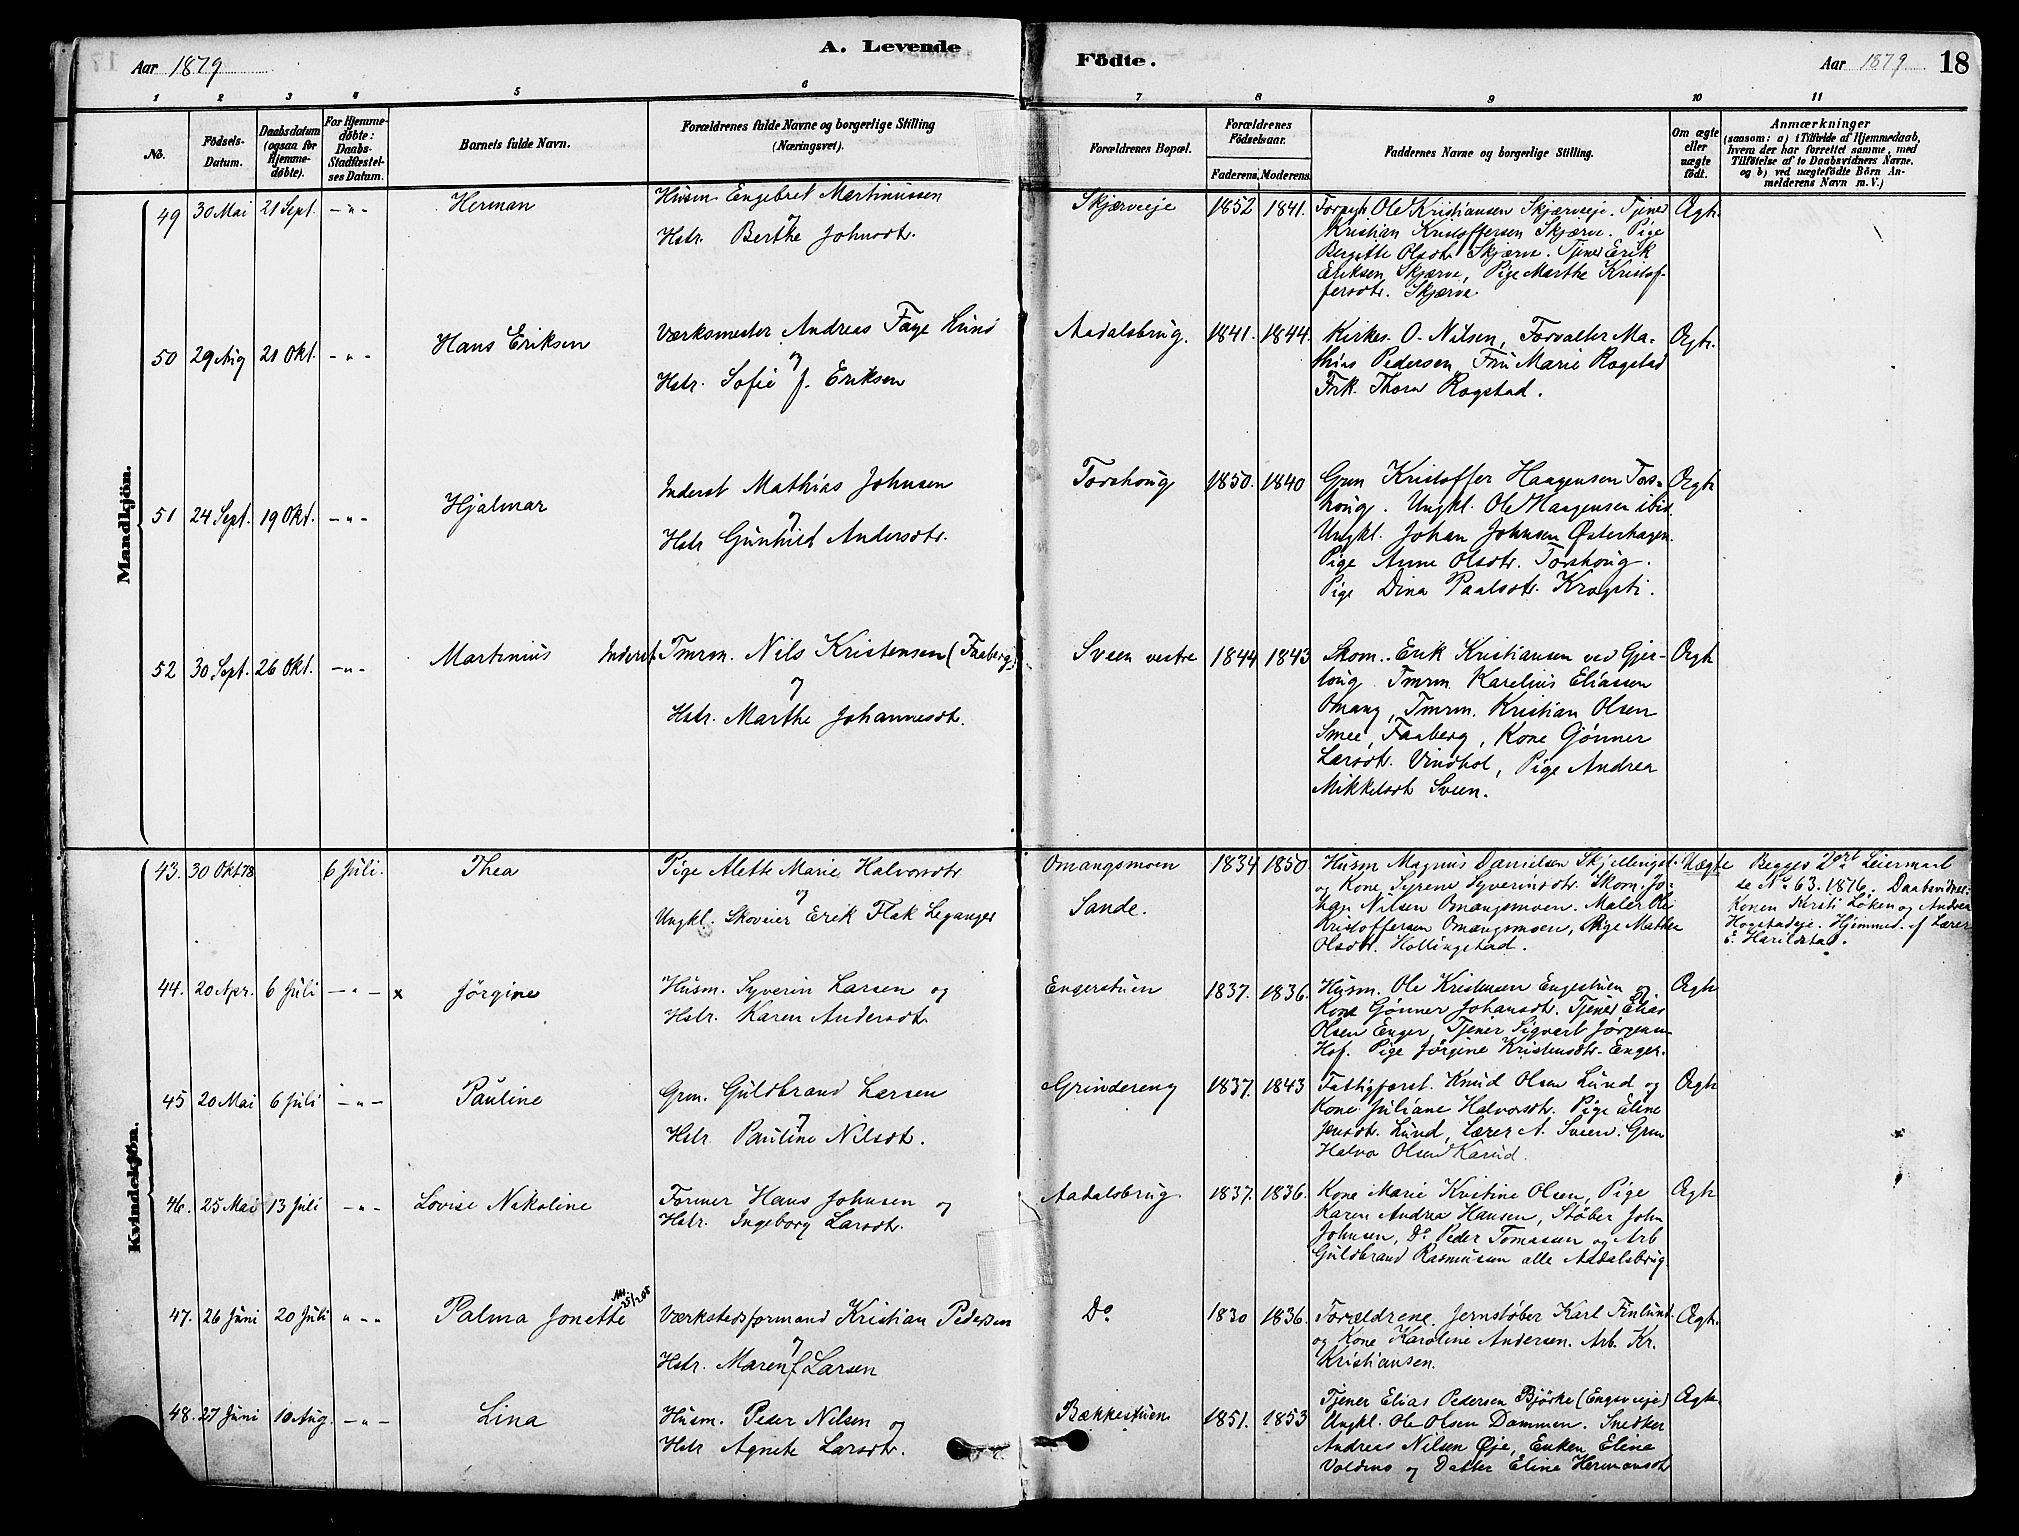 A. Levende Födte.
Aar 1879
Aar 1879 18
1 2 3 4 5 6 7 8 9 10 11
No.
Födsels-Datum.
Daabsdatum (ogsaa for Hjemmedøbte).
For Hjemmedøbte: Daabs-Stadfæstelses Datum.
Barnets fulde Navn.
Forældrenes fulde Navne og borgerlige Stilling (Næringsvei).
Forældrenes Bopæl.
Forældrenes Födselsaar.
Faderens. Moderens.
Faddernes Navne og borgerlige Stilling.
Om ægte eller uægte födt.
Anmærkninger
(saasom: a) i Tilfælde af Hjemmedaab, hvem der har forrettet samme, med Tilföielse af to Daabsvidners Navne, og b) ved uægtefödte Börn Anmelderens Navn m. V.)
Mandkjön.
49 30 Mai 21 Sept. -"- Herman
Husm Engebret Martinussen
og
Hstr. Berthe Johnsdt.
Skjærveie 1852 1841.
Ole Kristiansen Skjærveie. Tjener
Kristian Kristoffersen Skjærve. Pige
Bergitte Olsdt. Skjærve. Tjener Erik
Eriksen Skjærve, Pige Marthe Kristof-
fersdtr. Skjærve
Ægt.
50 29 Aug 21 Okt. -"- Hans Eriksen
Værksmester Andreas Faye Lund
og
Hstr. Sofie J. Eriksen
Aadalsbrug. 1841. 1844.
Kirkes. O. Nilsen, Forvalter Ma-
thias Pedersen, Fru Marie Rogstad
Frk. Thora Rogstad.
Ægt.
51 24 Sept. 19 Okt. -"- Hjalmar
Inderst Mathias Johnsen
og
Hstr Gunhild Andersdtr.
Torshoug 1850. 1840
Grm Kristoffer Haagensen Tors-
houg. Ungkl. Ole Haagensen ibid.
Ungkl. Johan Johnsen Østerhagen.
Pige Anne Olsdtr. Torshoug.
Pige Dina Paalsdtr. Krogsti.
Ægt
52 30 Sept. 26 Okt. -"- Martinius
Inderst. Tmrm. Nils Kristensen (Faaberg)
og
Hstr. Marthe Johannesdt.
Sveen vestre 1844 1843
Skom. Erik Kristiansen ved Gjer-
loug Tmrm. Karelius Eliassen
Omang, Tmrm. Kristian Olsen
Smee, Faaberg, Kone Gønner
Larsdt. Vindhol, Pige Andrea
Mikkelsdt Sveen.
Ægt
Kvindekjön.
43. 30 Okt 78 6 Juli. Thea
Pige Alette Marie Halvorsdtr
og
Ungkl. Skoveier Erik Flak Leganger
Omangsmoen
Sande.
1834 1850.
Husm Magnus Danielsen Skjellingst.
og Kone Syrene Syverinsdtr. Skom. Jo-
han Nilsen Omangsmoen. Maler Ole
Kristoffersen Omangsmoen, Pige Mathea
Olsdt. Hollingstad.
Uægte
Begges 2det Leiermaal
se No 63. 1876. Daabsvidner:
Konen Kersti Løken og Andrea
Hogstadeje. Hjemmed. af Lærer
E. Harildstad.
44. 20 Apr. 6 Juli -"- x Jörgine
Husm. Syverin Larsen og
Hstr. Karen Andersdt.
Engerstuen 1837. 1836.
Husm. Ole Kristensen Engestuen og
Kone Gønner Johansdt. Tjener Elias
Olsen Enger, Tjener Sigvart Jørgensen
Hof. Pige Jørgine Kristensdtr. Enger.
Ægt
45 20 Mai 6 Juli -"- Pauline
Grm. Guldbrand Larsen
og
Hstr Pauline Nilsdt.
Grindereng 1837. 1843
Fattigforst. Knud Olsen Lund og
Kone Juliane Halvorsdt. Pige Eline
Jensdt. Lund, Lærer A. Sveen. Grm
Halvo Olsen Karud.
Ægt
46. 25 Mai 13 Juli -"- Lovise Nikoline
Former Hans Johnsen og
Hstr. Ingeborg Larsdt.
Aadalsbrug 1837. 1836.
Kone Marie Kristine Olsen, Pige
Karen Andrea Hansen, Støber John
Johnsen, Do Peder Tomassen og Arb
Guldbrand Rasmussen alle Aadalsbrug
Ægt
47. 26 Juni 20 Juli "-" Palma Jonette 25/2 05
Værkstedsformand Kristian Pedersen
og
Hstr. Maren J Larsen
Do 1830 1836.
Forældrene. Jernstøber Karl Finlund
og Kone Karoline Andersen. Arb. Kr.
Kristiansen.
Ægt.
48. 27 Juni 10 Aug. -"- Lina
Husm. Peter Nilsen og
Hstr Agnete Larsdtr.
Bækkestuen 1851. 1853
Tjener Elias Pedersen Bjørke (Engsveje)
Ungkl. Ole Olsen Dammen. Snedker
Andreas Nilsen Øje, Enken Eline
Voldens og Datter Eline Hermansdt
Ægt.